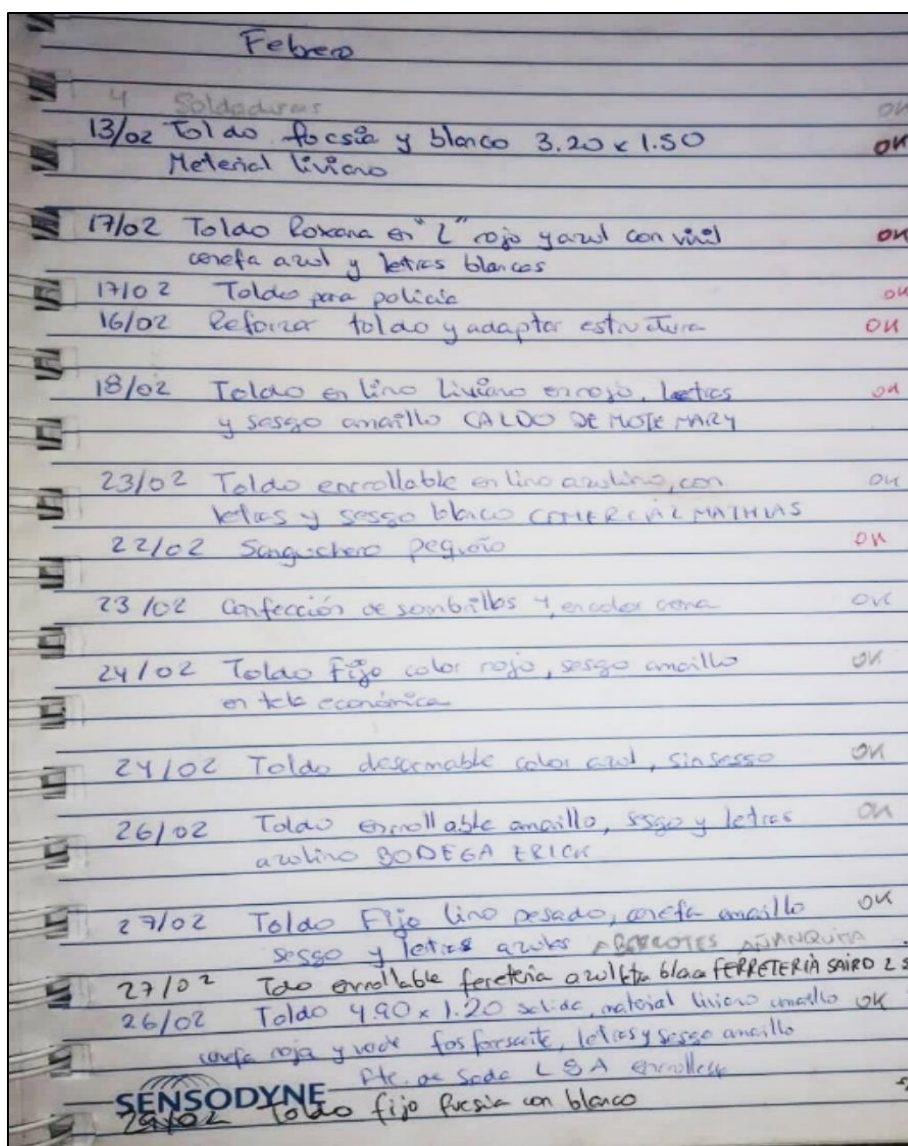 Febrero
4 Soldaduras OK
13/02 Toldo focsia y blanco 3.20 x 1.50 OK
Meterial liviano
17/02 Toldo Roxana en "L" rojo y azul con vinil OK
cenefa azul y letras blancas
17/02 Toldo para policia OK
16/02 Reforzar toldo y adaptar estructura OK
18/02 Toldo en lino liviano en rojo, letras OK
y sesgo amarillo CALDO DE MOTE MARY
23/02 Toldo enrollable en lino azulino, con OK
letras y sesgo blanco COMERCIAL MATHIAS
22/02 Sanguchero pequeño OK
23/02 Confección de sombrillas 4, OK
24/02 Toldo Fijo color rojo, sesgo amarillo OK
en tela económica
24/02 Toldo desarmable color azul, sin sesgo OK
26/02 Toldo enrollable amarillo, sesgo y letras OK
azulino BODEGA ERICK
27/02 Toldo Fijo lino pesado, cenefa amarillo OK
sesgo y letras azules ABARROTES AÑANQUITA
27/02 Todo enrollable fereteria azul FERRETERIA SAIRD 2
26/02 Toldo 4.90 x 1.20 salida, material liviano amarillo OK
cenefa roja y verde fosforescente, letras y sesgo amarillo
Fte. de Soda L&A
SENSODYNE
29/02 Toldo fijo fucsia con blanco